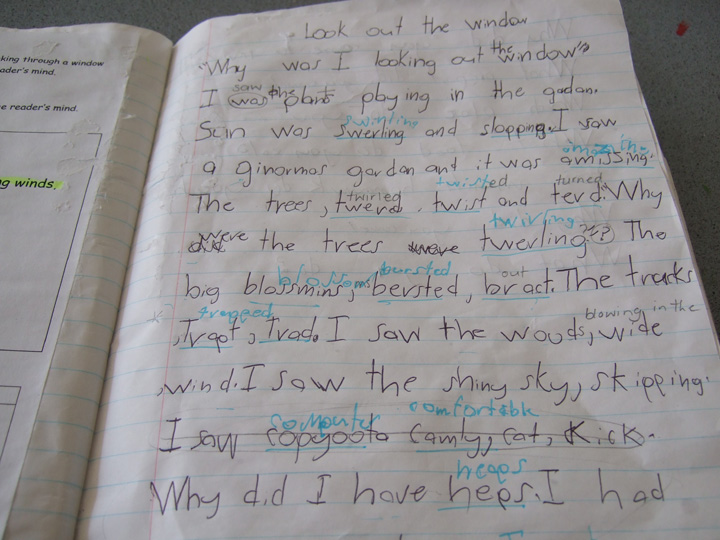 king through a window
ader's mind.
e reader's mind.
g winds,
Look out the window
the
"Why was I looking out window"?
saw the
I was plant playing in the gadan.
swirling
Sun was swerling and slapping. I saw
amazin
a ginormas gardan and it was amissing.
twirled twisted turned
The trees, twerd, twist and terd. Why
were twirling
the trees were twerling?? The
blossoms bursted out
big blossmins, bersted, bract. The trucks
trapped blowing in the
, Trapt, Trad. I saw the wouds, wide
, wind. I saw the shiny sky, skipping.
computer comfortable
I saw copyoota camly, cat, kick.
heaps
Why did I have heps. I had